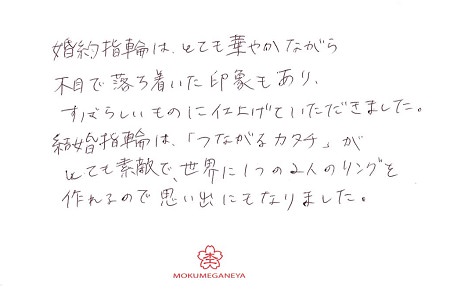 婚約指輪は、とても華やかながら
木目で落ち着いた印象もあり、
すばらしいものに仕上げていただきました。
結婚指輪は、「つながるカタチ」が
とても素敵で、世界に1つの2人のリングを
作れるので思い出にもなりました。
MOKUMEGANEYA